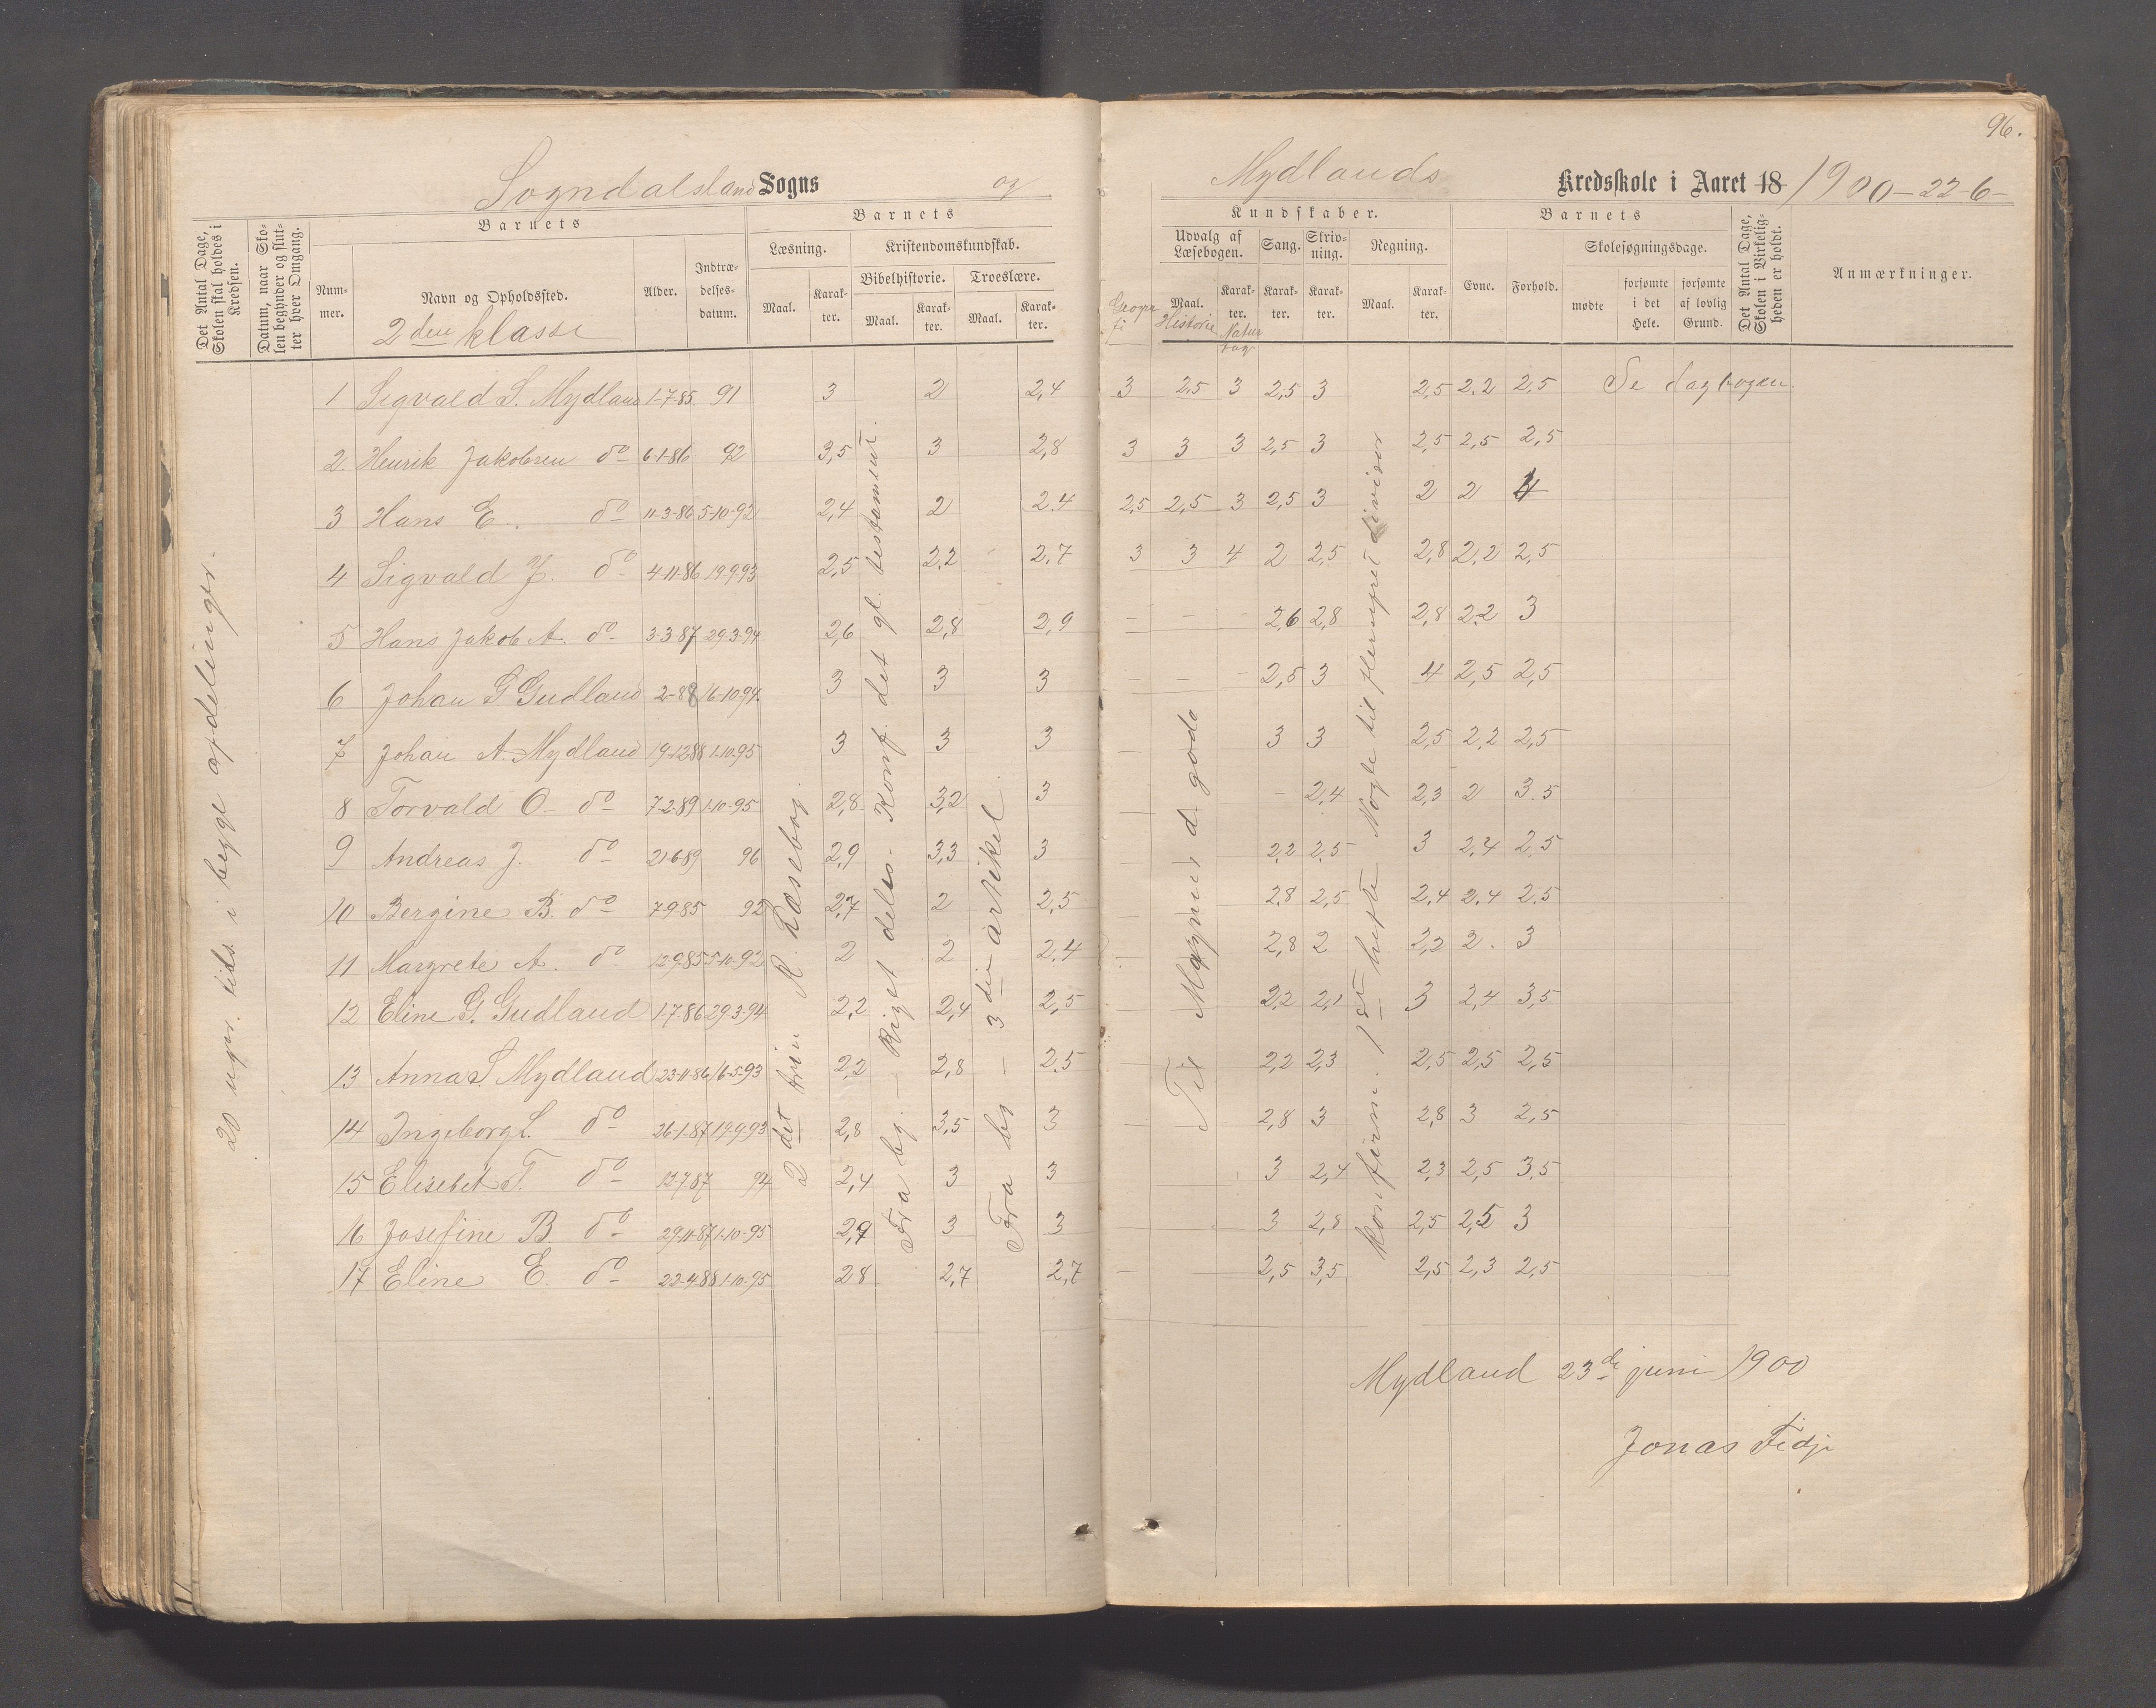 96.
Sogndalsland Sogns og Mydlands Kredsskole i Aaret 18 1900 – 22-6 –
Det Antal Dage, Skolen skal holdes i Kredsen.
Datum, naar Skolen begynder og slutter hver Omgang.
Barnets
Nummer.
Navn og Opholdssted.
2den klasse
Alder.
Indtrædelsesdatum.
Barnets
Læsning.
Maal.
Karakter.
Kristendomskundskab.
Bibelhistorie.
Maal.
Karakter.
Troeslære.
Maal.
Karakter.
Kundskaber.
Udvalg af Læsebogen.
Maal.
Historie
Karakter.
Natur
Sang.
Karakter.
Skrivning.
Karakter.
Regning.
Maal.
Karakter.
Barnets
Evne.
Forhold.
Skolesøgningsdage.
mødte
forsømte i det Hele.
forsømte af lovlig Grund.
Det Antal Dage, Skolen i Virkeligheden er holdt.
Anmærkninger.
20 uger. tids i begge afdelinger.
1 Sigvald S. Mydland 1-7-85. 91 3 2 2,4 3 2,5 3 2,5 3 2,5 2.2 2,5 Se dagbogen.
2. Henrik Jakobsen do 6-1-86 92 3,5 3 2,8 3 3 3 2,5 3 2,5 2,5 2,5
3 Hans E. do 11-3-86 5-10-92 2,4 2 2.4 2,5 2,5 3 2,5 3 2 2 4
4 Sigvald J. do 4-11-86 19-9-93 2,5 2.2 2.7 3 3 4 2 2,5 2,8 2,2 2,5
5 Hans Jakob A. do 3-3-87 29-3-94 2,6 2,8 2,9 – – – 2,6 2,8 2,8 2.2 3
6 Johan G Gudland 2-88 16-10-94. 3 3 3 – – – 2,8 3 4 2,5 2,5
7 Johan A. Mydland 19-12-88 1-10-95 3 3 3 – 3 3 2,5 2.2 2,5
8 Torvald O – do 7-2-89 1-10-95 2,8 3,2 3 – 2,4 2,3 2 3.5
9 Andreas J. do 21-6-89 96 2,9 3,3 3 – 2.2 2.5 3 2,4 2,5
10 Bergine B. do 7-9-85 92 2,7 2 2,5 2.8 2,5 2,4 2,4 2.5
11 Margrete A. do 12-9-85 5-10-92 2 2 2,4 – 2,8 2 2,2 2. 3
12 Eline G. Gudland 1-7-86 29-3-94 2,2 2,4 2,5 2,2 2,1 3 2,4 3,5
13 Anna S. Mydland 23-11-86 16-5-93 2,2 2,8 2.5 – 2,2 2,3 2,5 2,5 2,5
14 Ingeborg L. do 26-1-87 19-9-93 2,8 3,5 3 – 2,8 3 2,8 3 2,5
15 Elisebet T. do 12-7-87 94 2,4 3 3 3 2,4 2,3 2,5 3,5
16 Josefine B. do 29-11-87 1-10-95 2,9 3 3 – 3 2,8 2,5 2,5 3
17 Eline E. do 22-4-88 1-10-95 28 2,7 2,7 – 2,5 3,5 2,5 2,3 2,5
2det trin R. Læsebog.
Fra bg. – Riget deles. – Komf. det gl. testament.
Fra bg – 3die artikel
Til Magnus d. gode
konfirm. 1ste hefte Nogle til flersifret divisor
Mydland 23de juni 1900
Jonas Fidje